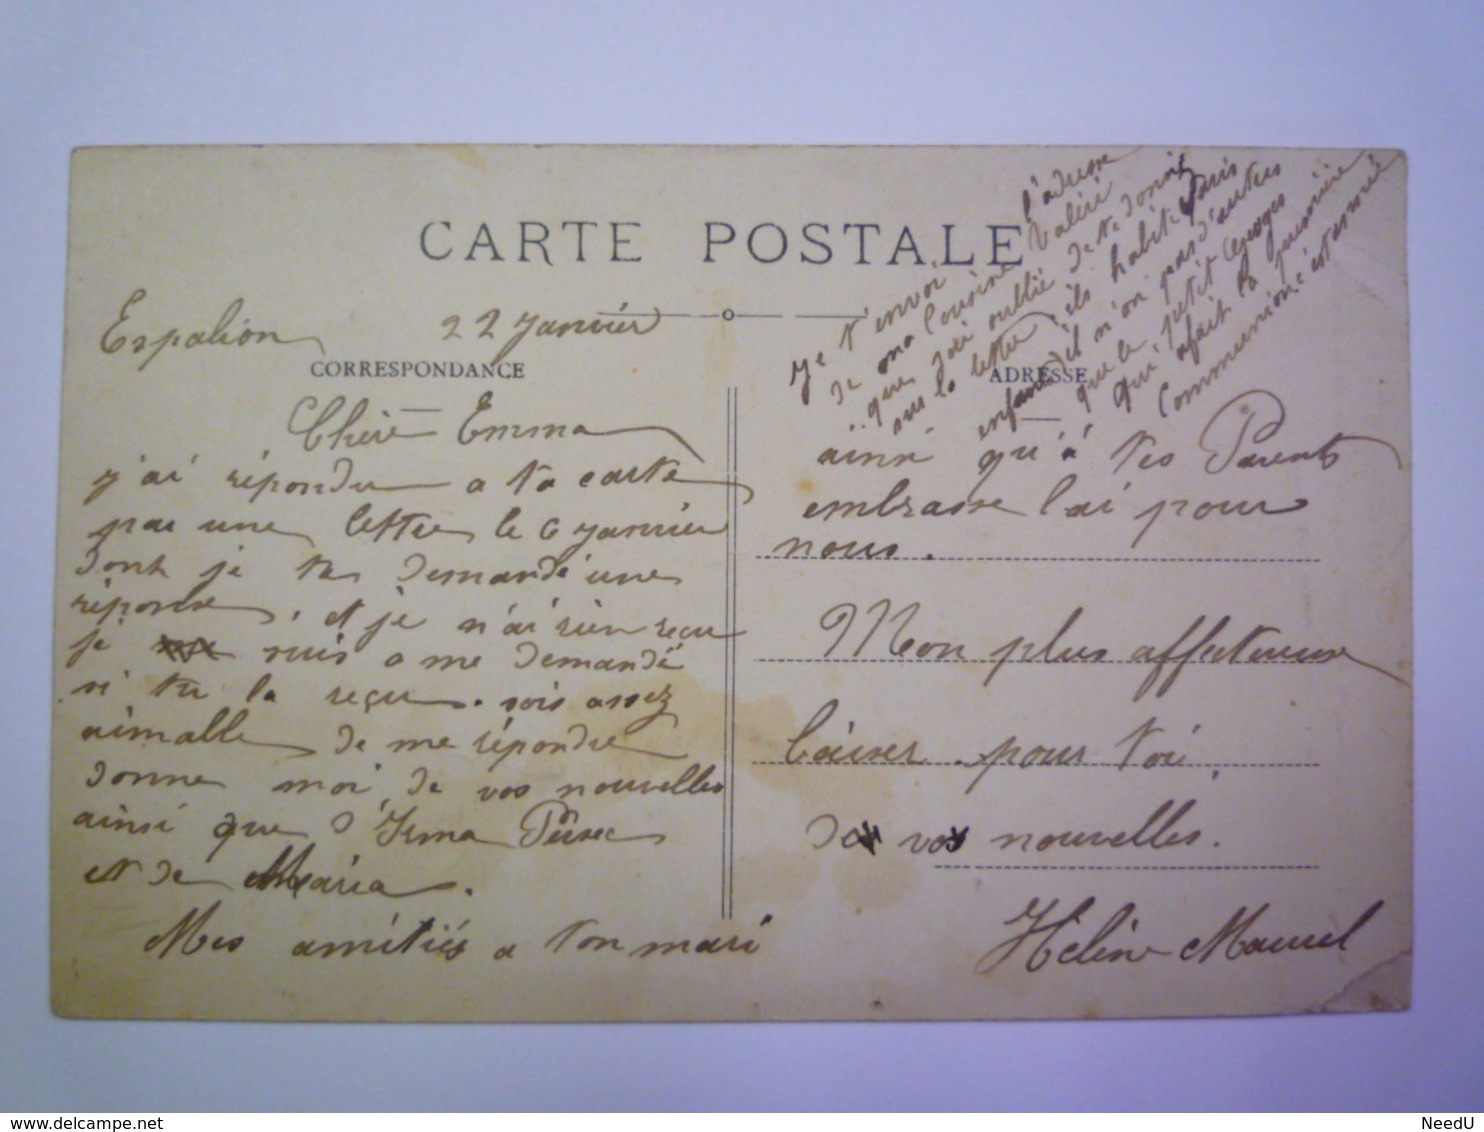 CARTE POSTALE
Espalion 22 Janvier
CORRESPONDANCE
Chère Emma
j'ai répondu a ta carte
par une lettre le 6 Janvier
dont je te demandé une
réponse, et je n'ai rien reçu
je suis a me demandé
si tu la reçu. sois assez
aimable de me répondre
donne moi de vos nouvelles
ainsi que d'Irma
et de Maria.
Mes amitiés a ton mari
ADRESSE
ainsi qu'à tes Parents
embrasse lai pour
nous.
Mon plus affectueuse
baiser pour toi.
de vos nouvelles.
Hélène Maurel
Je t'envoi l'adresse
de ma Cousine Valéri
que j'ai oublié de te donné
sur la lettre, ils habite Paris
enfant il n'on pas d'autres
que le petit Georges
qui a fait la première
Communion c'est année
delcampe.net
NeedU